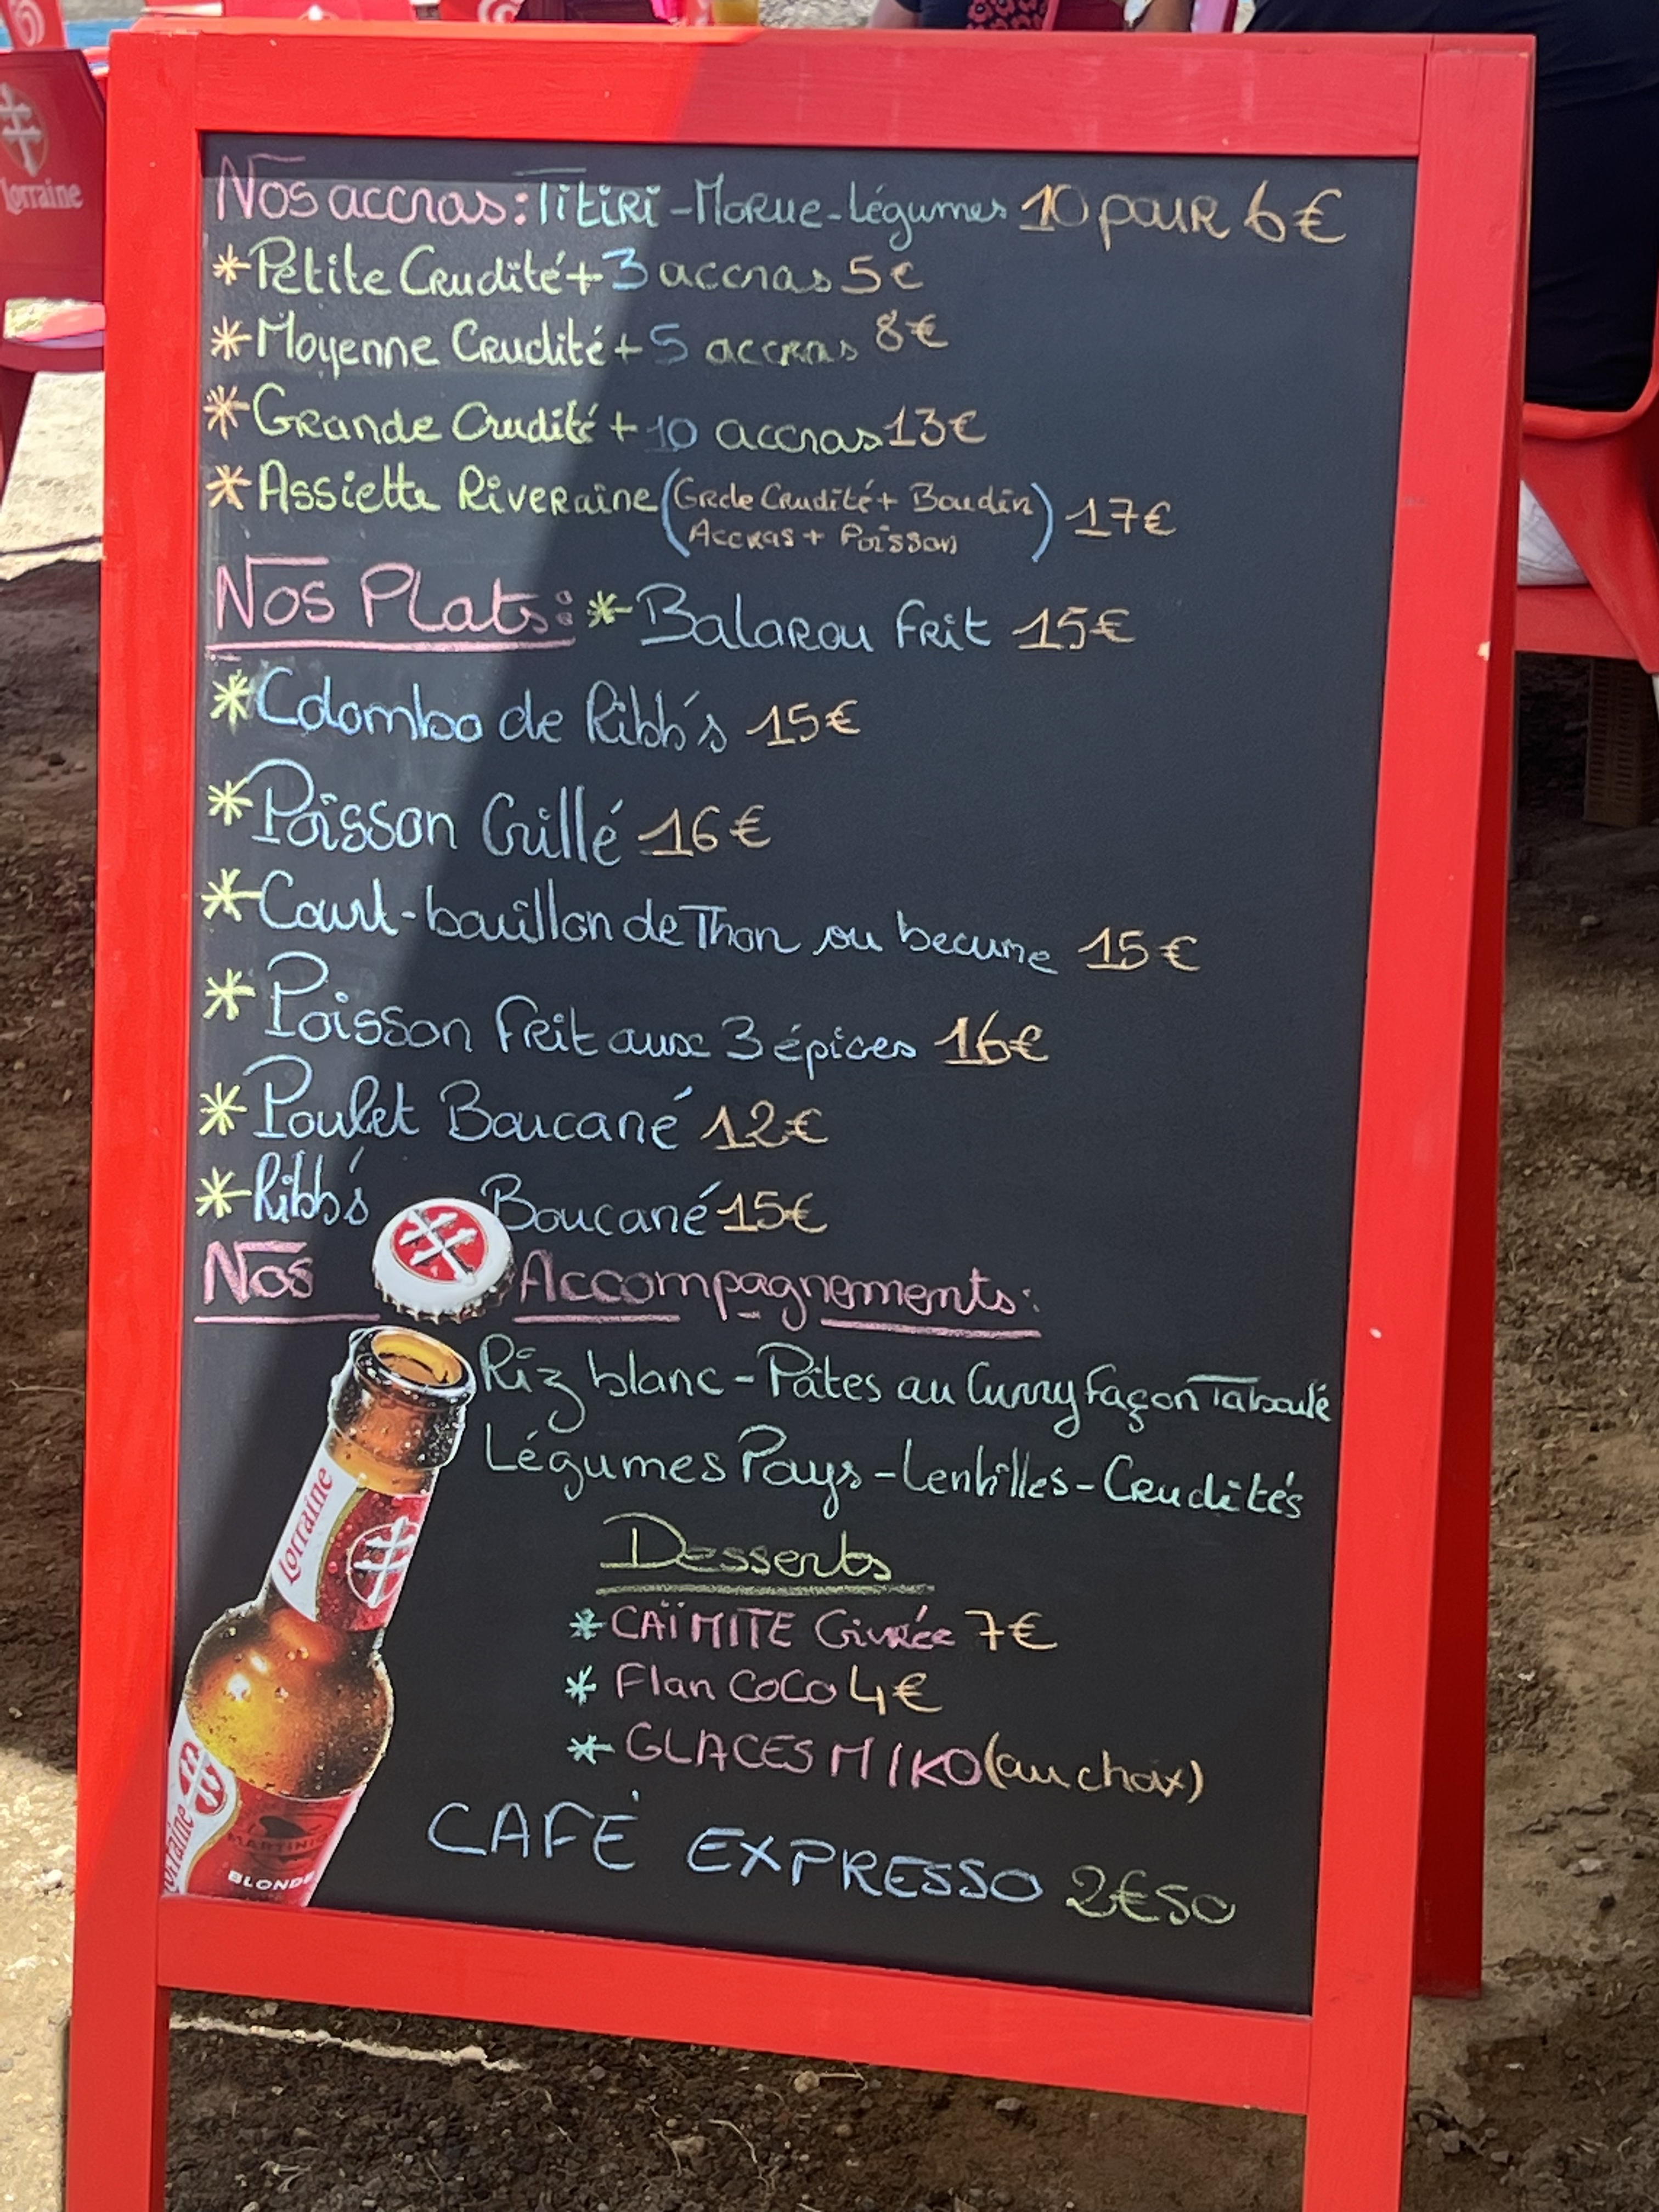 Nos accras: Titiri - Morue - Légumes 10 pour 6€
*Petite Crudité + 3 accras 5€
*Moyenne Crudité + 5 accras 8€
*Grande Crudité + 10 accras 13€
*Assiette Riveraine (Grde Crudité + Boudin Accras + Poisson) 17€
Nos Plats: *Balarou frit 15€
*Colombo de Ribb's 15€
*Poisson Grillé 16€
*Court-bouillon de Thon ou becune 15€
*Poisson frit aux 3 épices 16€
*Poulet Boucané 12€
*Ribb's Boucané 15€
Nos Accompagnements:
Riz blanc - Pâtes au Curry façon Taboulé
Légumes Pays - Lentilles - Crudités
Desserts
*CAÏMITE Givrée 7€
*Flan COCO 4€
*GLACES MIKO (au choix)
CAFÉ EXPRESSO 2€50
Lorraine
Lorraine
MARTINIQ
BLONDE
Lorraine